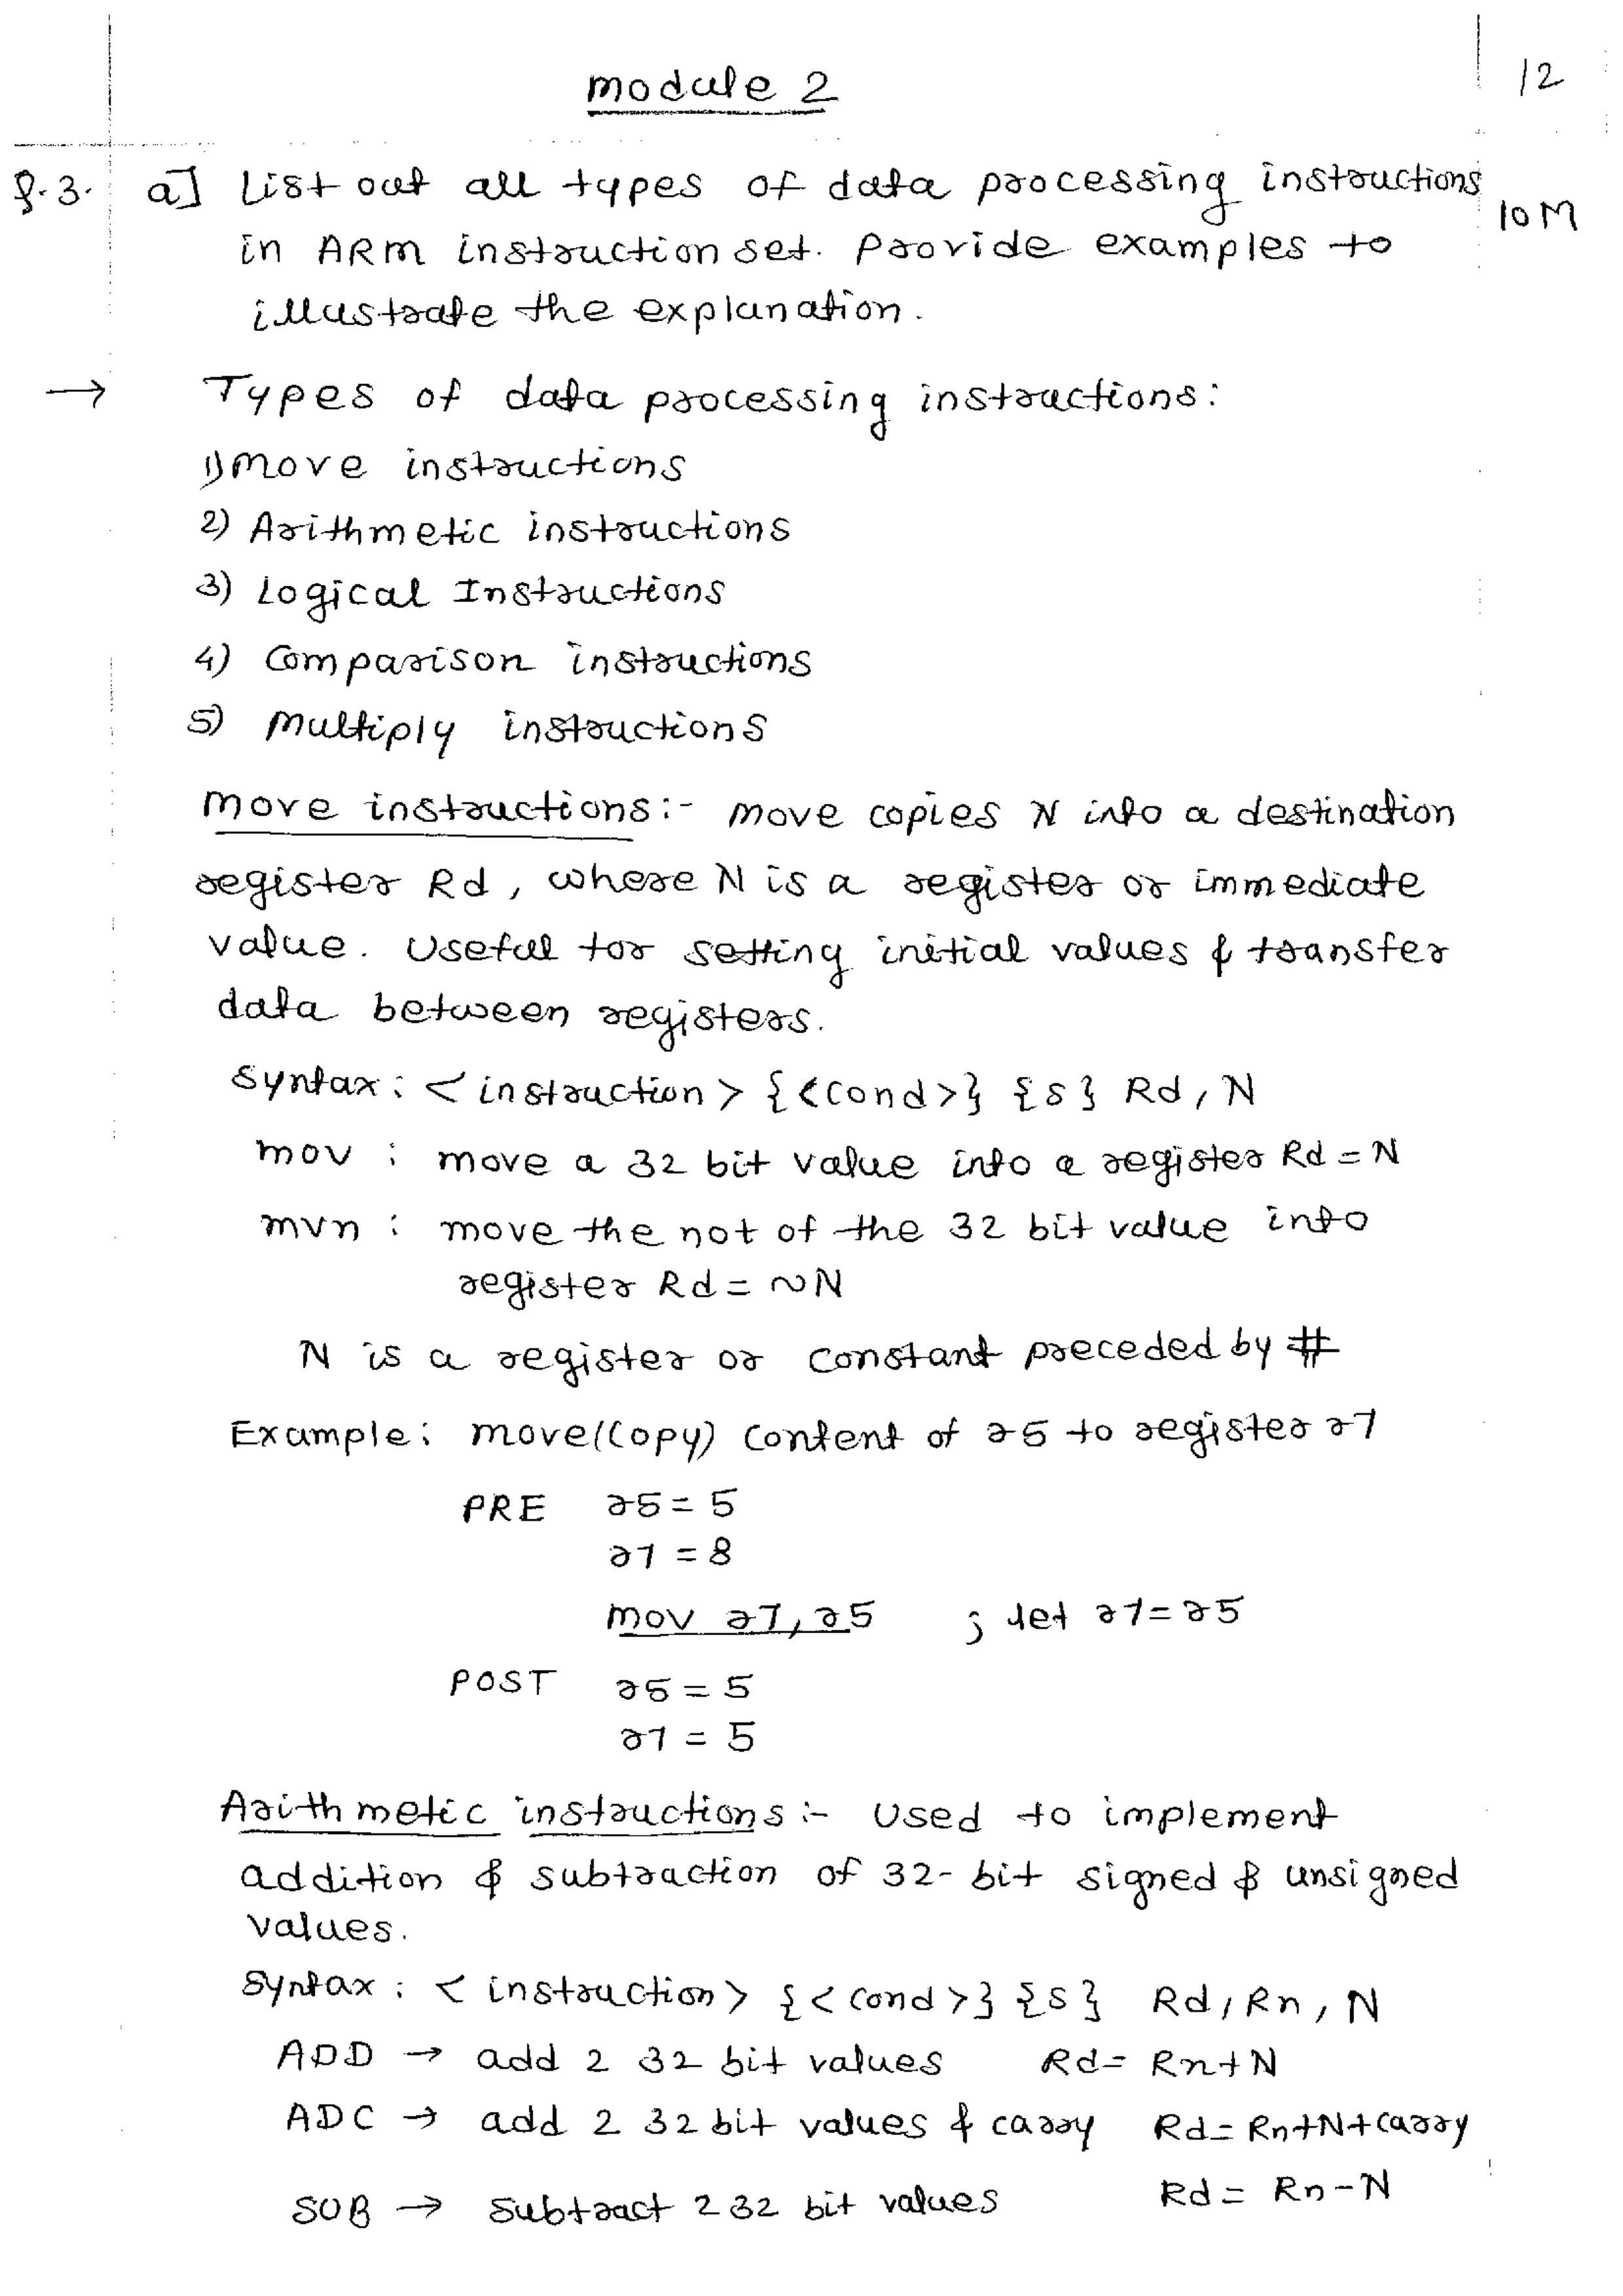 module 2
12
Q.3. a] List out all types of data processing instructions
10M
in ARM instruction set. Provide examples to
illustrate the explanation.
→ Types of data processing instructions:
1) Move instructions
2) Arithmetic instructions
3) Logical Instructions
4) Comparison instructions
5) Multiply instructions
Move instructions:- Move copies N into a destination
register Rd, where N is a register or immediate
value. Useful for setting initial values & transfer
data between registers.
Syntax: <instruction> {<cond>} {s} Rd, N
mov : move a 32 bit value into a register Rd = N
mvn : move the not of the 32 bit value into
register Rd = ~N
N is a register or constant preceded by #
Example: move(copy) content of r5 to register r7
PRE r5 = 5
r7 = 8
mov r7, r5 ; let r7 = r5
POST r5 = 5
r7 = 5
Arithmetic instructions :- Used to implement
addition & subtraction of 32-bit signed & unsigned
values.
Syntax : <instruction> {<cond>} {s} Rd, Rn, N
ADD → add 2 32 bit values Rd = Rn+N
ADC → add 2 32 bit values & carry Rd = Rn+N+carry
SUB → Subtract 2 32 bit values Rd = Rn-N